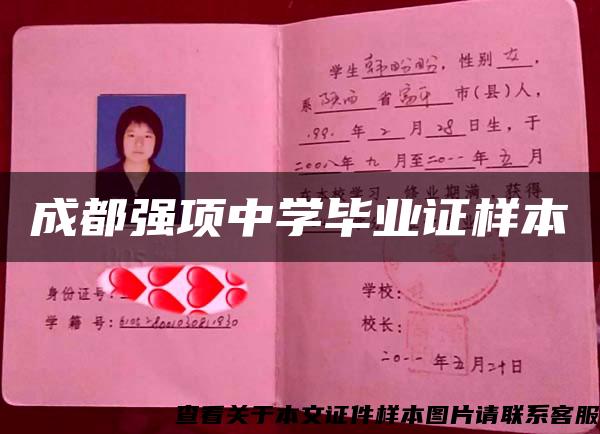 学生韩盼盼,性别女,
系陕西省富平市(县)人,
199 年2月28日生,于
二00八年九月至二0一一年五月
在本校学习,修业期满,获得
成都强项中学毕业证样本
身份证号:
学籍号:
学校:
校长:
二0一一年五月二十日
查看关于本文证件样本图片请联系客服